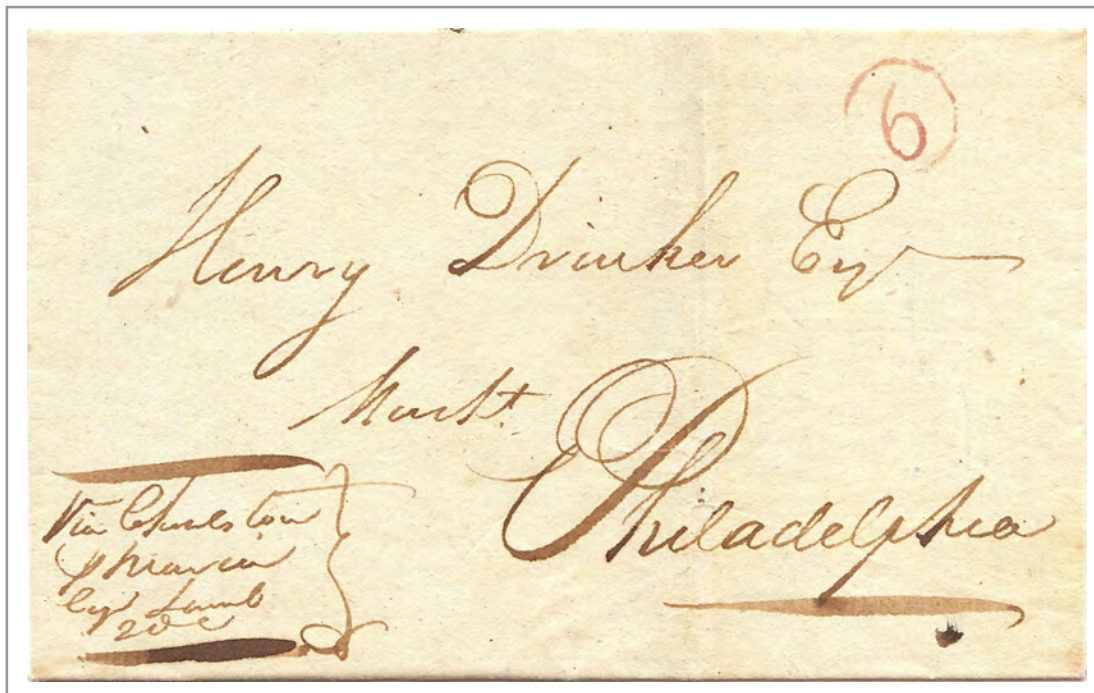 6
Henry Drinker Esqr
Mercht.
Philadelphia
Via Charleston
p Maria
Cap Lamb